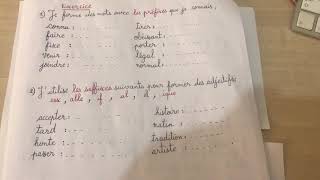 Exercice
1) Je forme des mots avec les préfixes que je connais,
connu : . . . . . . tirer : . . . . . .
faire : . . . . . . obéissant : . . . . . .
fixe : . . . . . . porter : . . . . . .
venir : . . . . . . légal : . . . . . .
joindre : . . . . . . normal : . . . . . .
2) J'utilise les suffixes suivants pour former des adjectifs
alle, if, al, el, ique
accepter : . . . . . . histoire : . . . . . .
tard : . . . . . . matin : . . . . . .
honte : . . . . . . tradition : . . . . . .
passer : . . . . . . artiste : . . . . . .